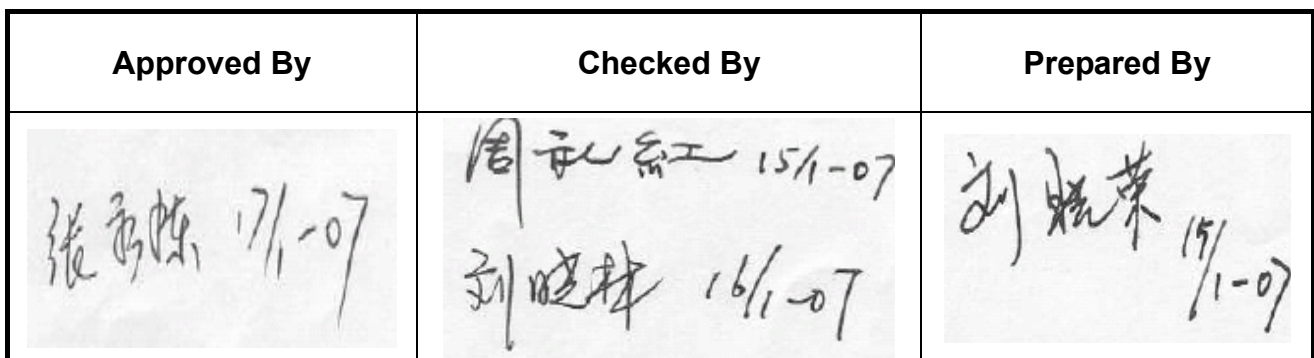 Approved By
Checked By
Prepared By
张 栋 17/1-07
周 红 15/1-07
刘晓林 16/1-07
刘晓荣
15/1-07